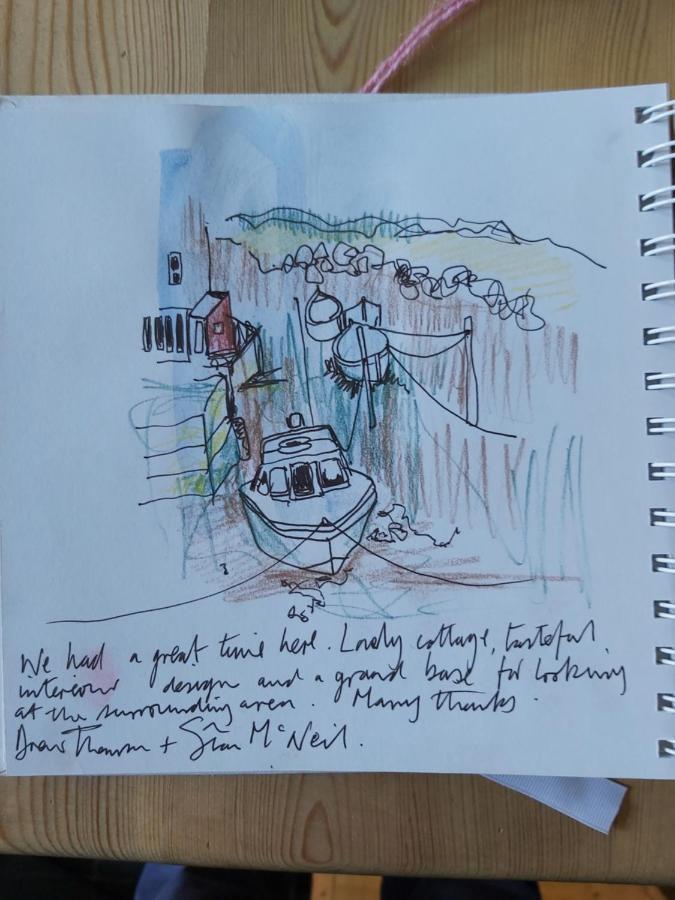 We had a great time here. Lovely cottage, tasteful
interior design and a grand base for looking
at the surrounding area. Many thanks.
Drew Thomson + Siân McNeil.